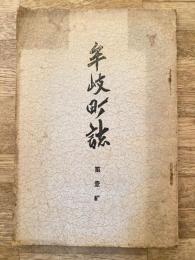 牟岐町誌
第壹号